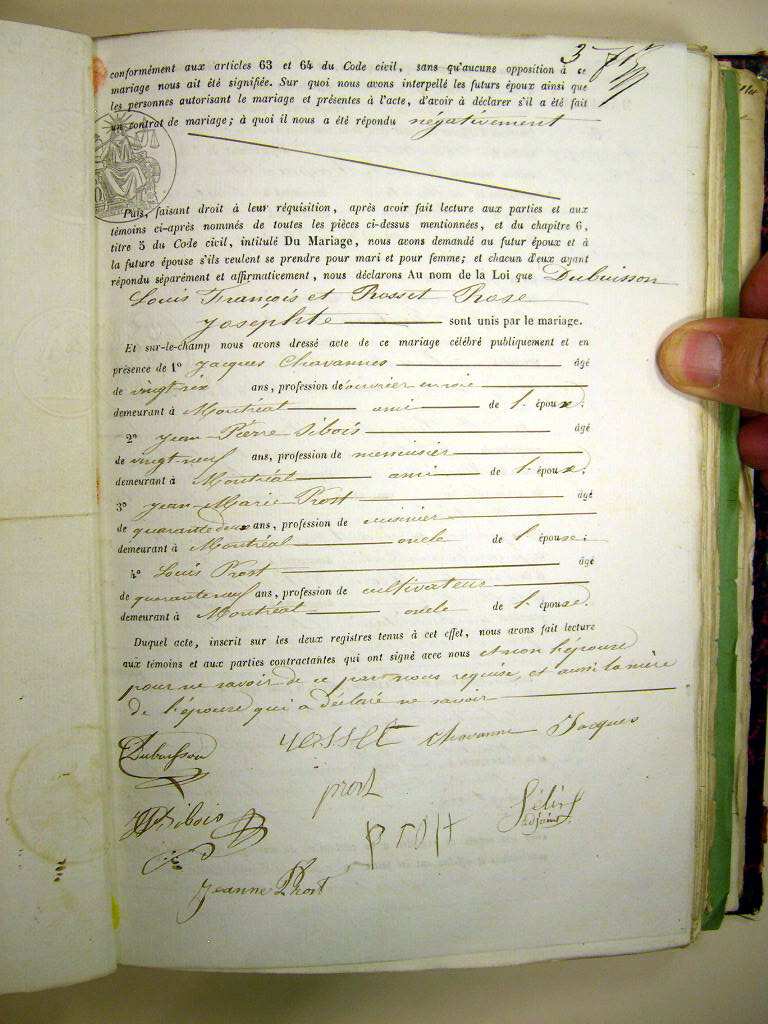 3
conformément aux articles 63 et 64 du Code civil, sans qu'aucune opposition à ce
mariage nous ait été signifiée. Sur quoi nous avons interpellé les futurs époux ainsi que
les personnes autorisant le mariage et présentes à l'acte, d'avoir à déclarer s'il a été fait
un contrat de mariage; à quoi il nous a été répondu négativement
Puis, faisant droit à leur réquisition, après avoir fait lecture aux parties et aux
témoins ci-après nommés de toutes les pièces ci-dessus mentionnées, et du chapitre 6,
titre 5 du Code civil, intitulé Du Mariage, nous avons demandé au futur époux et à
la future épouse s'ils veulent se prendre pour mari et pour femme; et chacun d'eux ayant
répondu séparément et affirmativement, nous déclarons Au nom de la Loi que Dubuisson
Louis François et Rosset Rose
Josephte sont unis par le mariage.
Et sur-le-champ nous avons dressé acte de ce mariage célébré publiquement et en
présence de 1° Jacques Chavannes âgé
de vingt six ans, profession de ouvrier en soie
demeurant à Montréal ami de l'époux.
2° Jean-Pierre Sibois âgé
de vingt neuf ans, profession de menuisier
demeurant à Montréal ami de l'époux.
3° Jean-Marie Prost âgé
de quarante deux ans, profession de cuisinier
demeurant à Montréal oncle de l'épouse.
4° Louis Prost âgé
de quarante neuf ans, profession de cultivateur
demeurant à Montréal oncle de l'épouse.
Duquel acte, inscrit sur les deux registres tenus à cet effet, nous avons fait lecture
aux témoins et aux parties contractantes qui ont signé avec nous et non l'épouse
pour ne savoir de ce par nous requise, et aussi la mère
de l'épouse qui a déclaré ne savoir
Dubuisson rosset Chavanne Jacques
prost
Sibois prost Félix
adjoint
Jeanne Prost